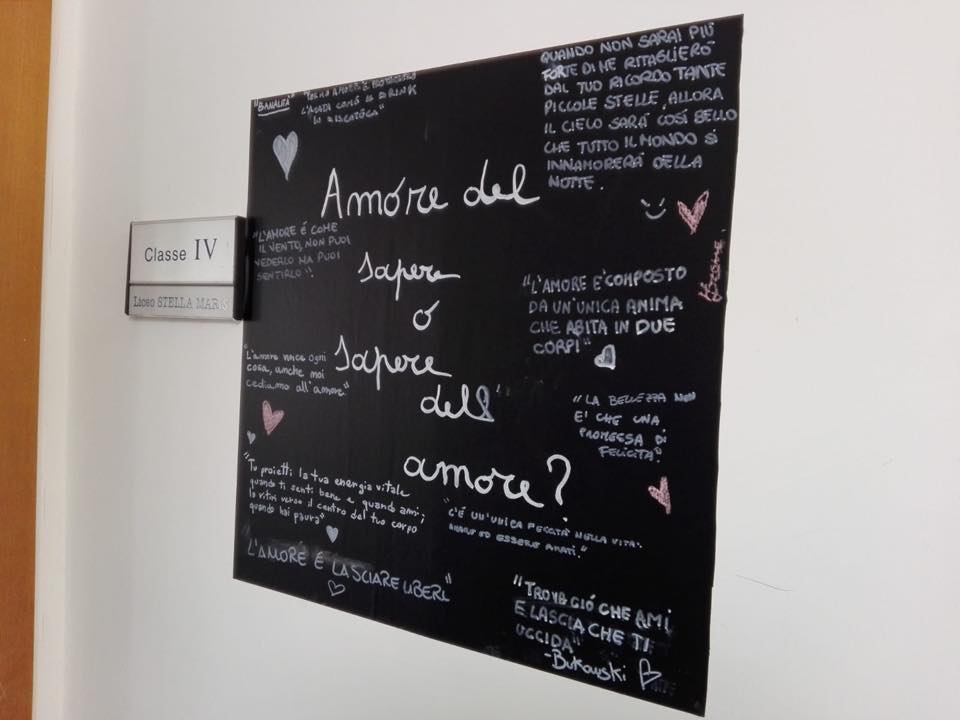 Classe IV
Liceo STELLA MARIS
"BANALITÀ"
L'AGATA COM'È IL DRINK
IN DISCOTECA"
QUANDO NON SARAI PIÙ
PARTE DI ME RITAGLIERÒ
DAL TUO RICORDO TANTE
PICCOLE STELLE, ALLORA
IL CIELO SARÀ COSÌ BELLO
CHE TUTTO IL MONDO SI
INNAMORERÀ DELLA
NOTTE.
Amore del
sapere
o
sapere
dell'
amore?
"L'AMORE É COME
IL VENTO, NON PUOI
VEDERLO MA PUOI
SENTIRLO".
"L'AMORE E' COMPOSTO
DA UN'UNICA ANIMA
CHE ABITA IN DUE
CORPI"
"L'amore vince ogni
cosa, anche noi
cediamo all'amore"
"LA BELLEZZA NON
E' CHE UNA
PROMESSA DI
FELICITA'".
"Tu proietti la tua energia vitale
quando ti senti bene e quando ami;
la ritiri verso il centro del tuo corpo
quando hai paura"
"C'É UN'UNICA FELICITÀ NELLA VITA:
AMARE ED ESSERE AMATI."
"L'AMORE É LASCIARE LIBERI"
"TROVA CIÓ CHE AMI
E LASCIA CHE TI
UCCIDA"
-Bukowski